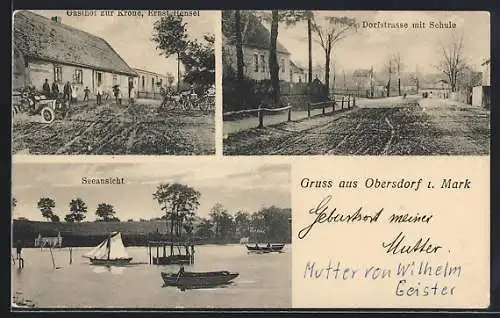 Gasthof zur Krone, Ernst Hensel
Dorfstrasse mit Schule
Seeansicht
Gruss aus Obersdorf i. Mark
Geburtsort meiner
Mutter.
Mutter von Wilhelm
Geister